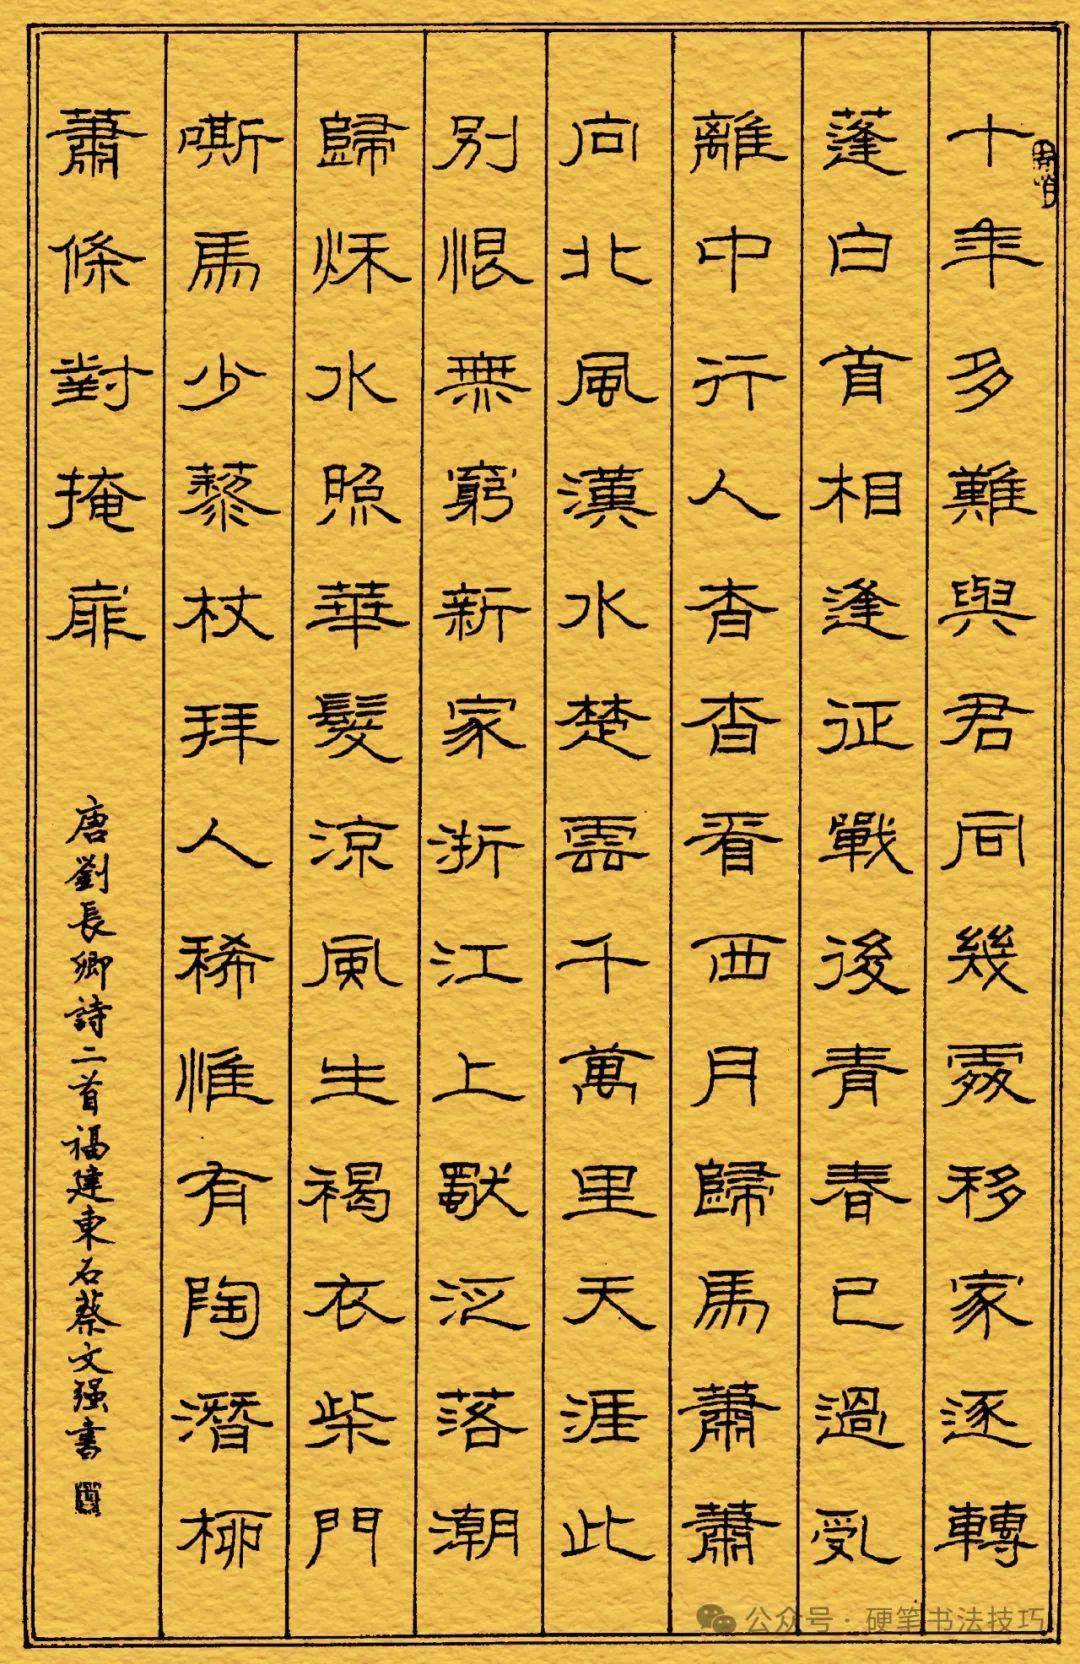 十年多難與君同幾處移家逐轉
蓬白首相逢征戰後青春已過亂
離中行人杳杳看西月歸馬蕭蕭
向北風漢水楚雲千萬里天涯此
別恨無窮新家浙江上獨泛落潮
歸秌水照華髮涼風生褐衣柴門
嘶馬少藜杖拜人稀惟有陶潛柳
蕭條對掩扉
唐劉長卿詩二首福建東石蔡文强書
公众号·硬笔书法技巧